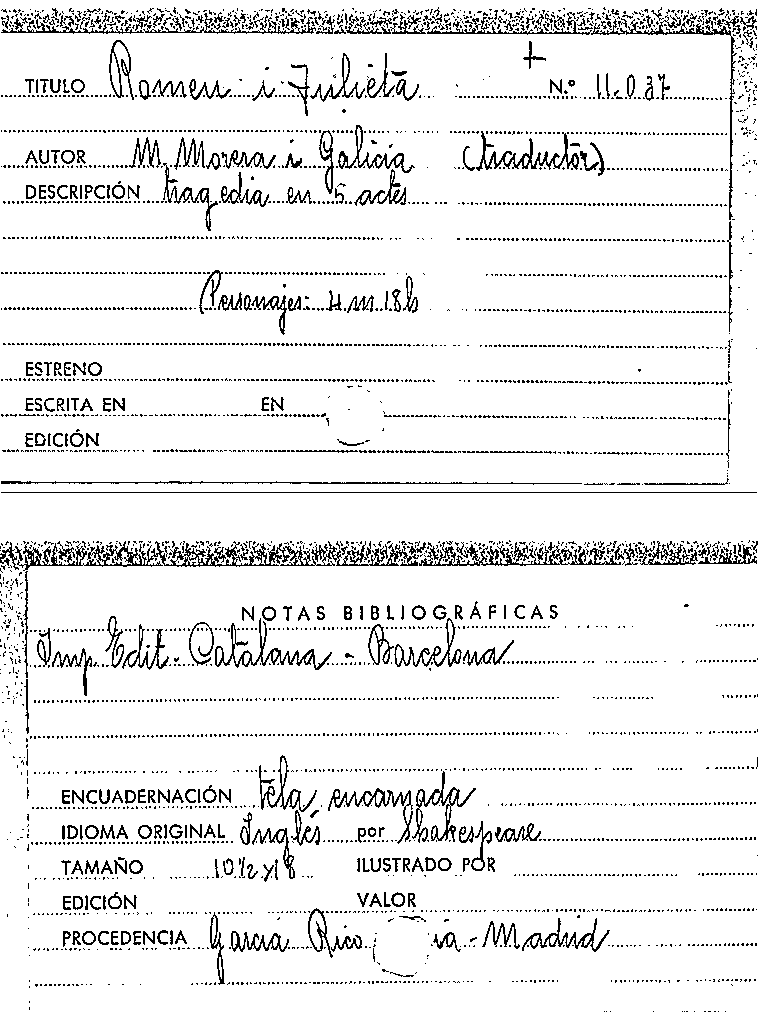 +
TITULO Romeu i Julieta N.º 11.037
AUTOR M. Morera i Galicia (traductor)
DESCRIPCIÓN tragedia en 5 actes
Personajes: 4 m 18 h
ESTRENO
ESCRITA EN EN
EDICIÓN
NOTAS BIBLIOGRÁFICAS
Imp. Edit. Catalana - Barcelona
ENCUADERNACIÓN tela encarnada
IDIOMA ORIGINAL Inglés por Shakespeare
TAMAÑO 10½ x 18 ILUSTRADO POR
EDICIÓN VALOR
PROCEDENCIA García Rico ia - Madrid